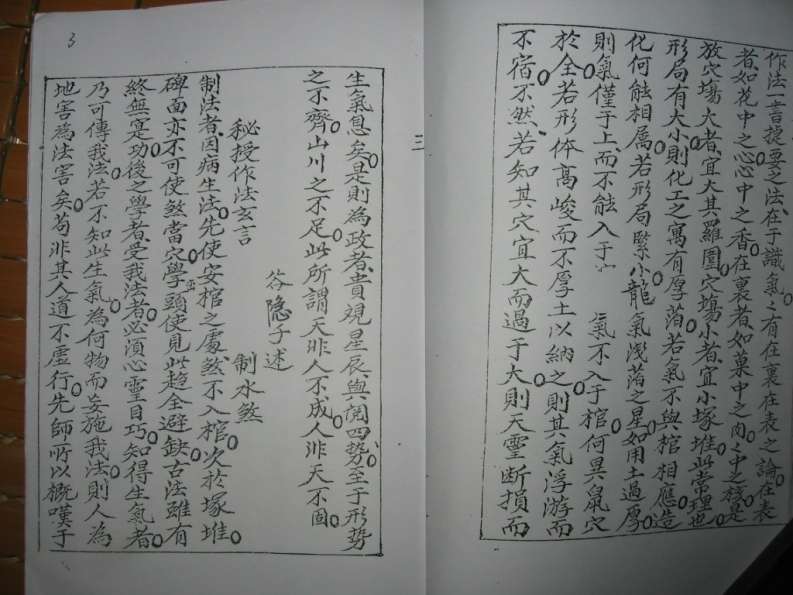 作法一言捷要之法。在于識氣。氣有在裏在表之論。在表
者如花中之心。心中之香。在裏者。如菓中之肉。肉中之核。是
放穴塲大者。宜大其羅圍。穴塲小者。宜小塚堆。此常理也。
形局有大小。則化工之寓有厚薄。若氣不與棺相應。造
化何能相属。若形局緊小。龍氣浅薄之星。如用土過厚。
則氣僅于上而不能入于
氣不入于棺。何異鼠穴
於仝。若形体高峻而不厚土以納之。則其氣浮游而
不宿。不然。若知其穴宜大而過于大。則天靈断損而
三
生氣息矣。是則為政者。貴覌星辰。與閲四勢。至于形勢
之不齊。山川之不足。此所謂天非人不成。人非天不固。
答隐子述
秘授作法玄言
制水煞
制法者。因病生法。先使安棺之處。煞不入棺。次於塚堆。
碑面亦不可使煞當穴。學頭使見此超全避缺。古法雖有
終無寔功。後之學者。受我法者。必須心靈目巧。知得生氣者。
乃可傳我法。若不知此生氣。為何物而妄施我法。則人為
地害為法害矣。苟非其人道不虚行。先師所以概嘆于
3